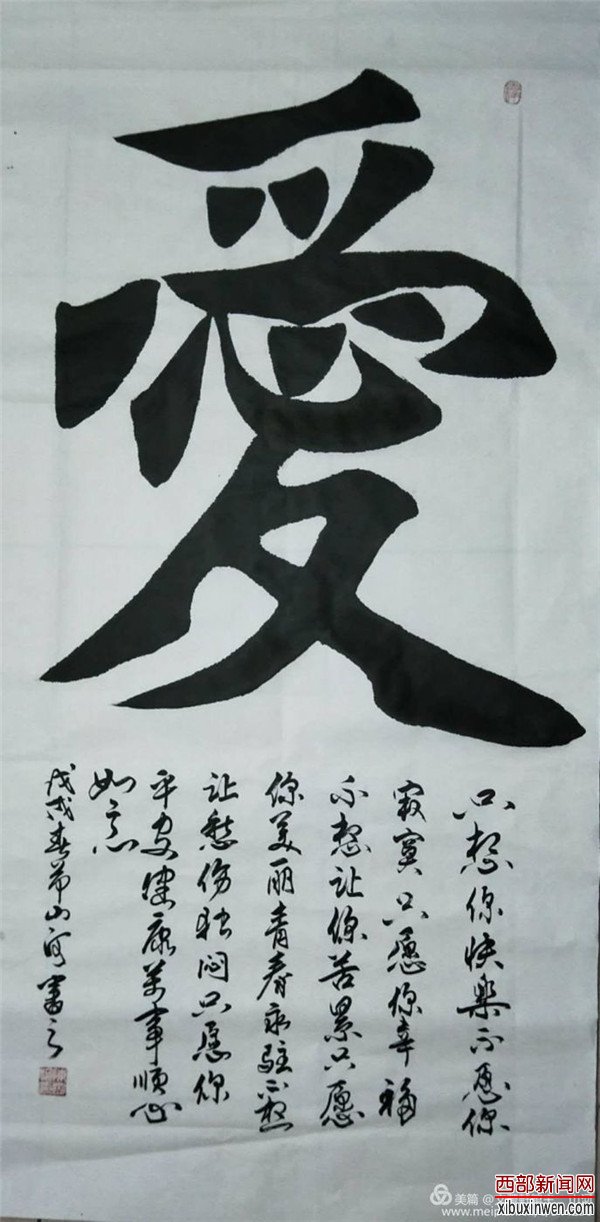 愛
只想你快樂不愿你
寂寞只愿你幸福
不想让你苦累只愿
你美丽青春永驻不想
让愁伤闷只愿你
平安健康萬事順心
如意
戊戌春山河書之
美篇 @
www.meip
西部新闻网
xibuxinwen.com